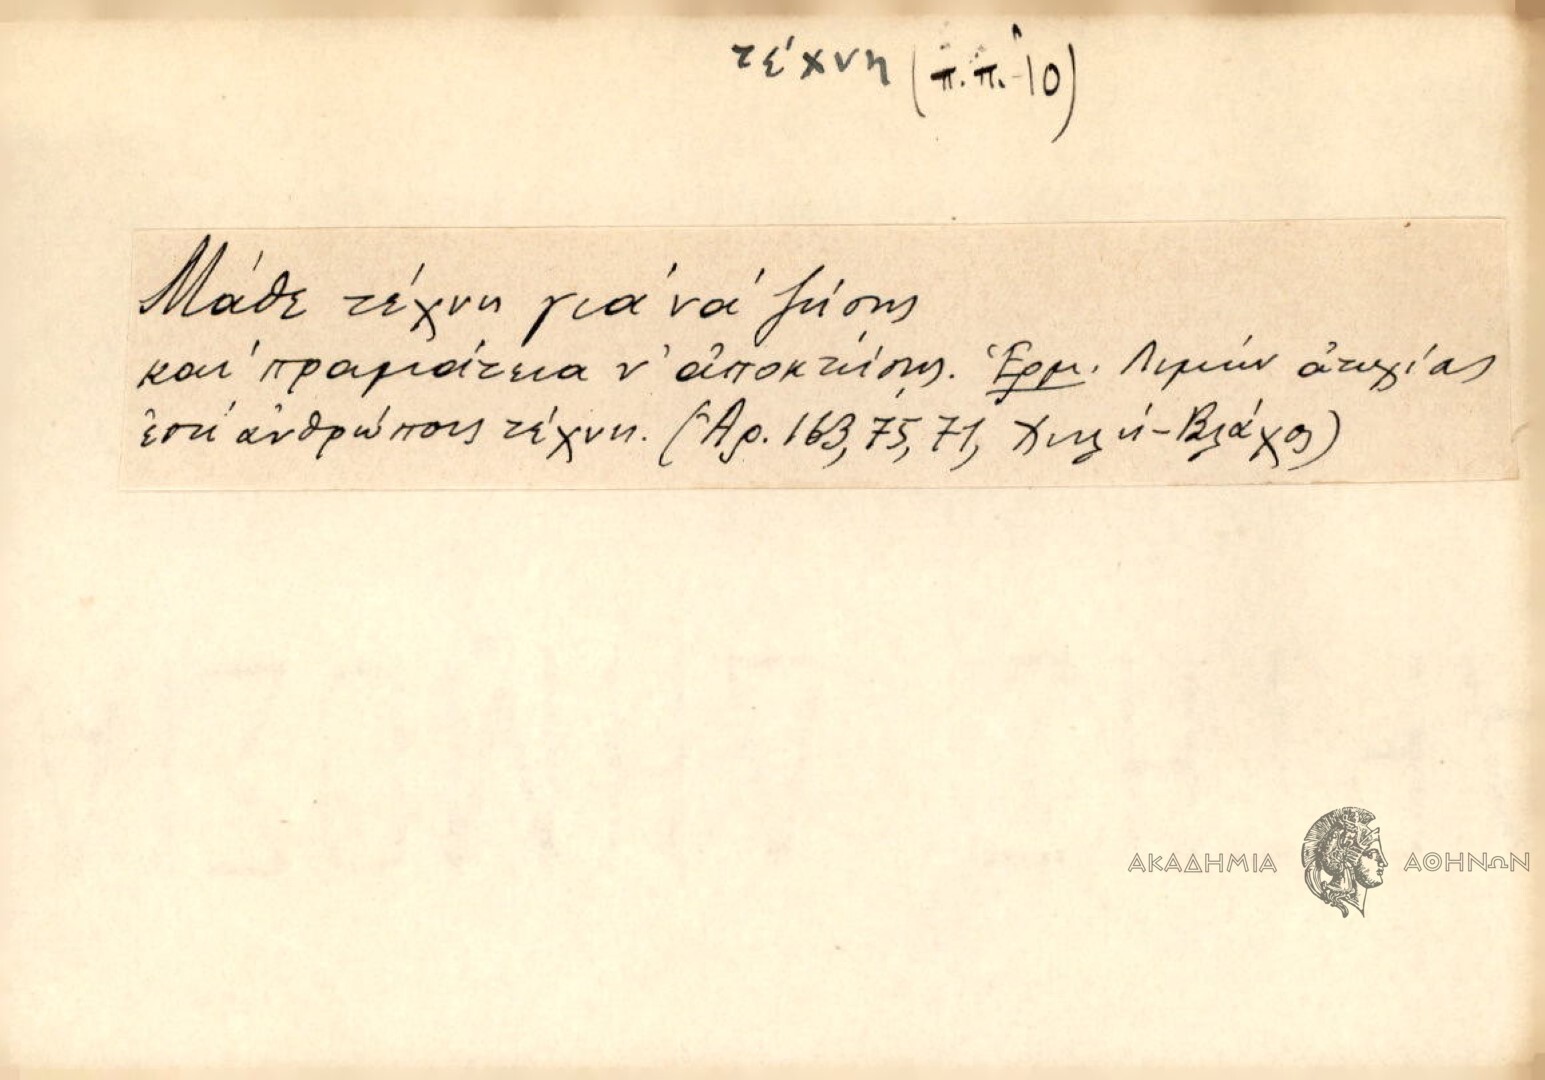 τέχνη (π.π. 10)
Μάθε τέχνη γιά νά ζήσης
καί πραμάτεια ν' ἀποκτήσης. Ἑρμ. Λιμήν ἀτυχίας
ἐστί ἀνθρώποις τέχνη. (Ἀρ. 163, 75, 71, Χιλή-Βλάχος)
ΑΚΑΔΗΜΙΑ ΑΘΗΝΩΝ